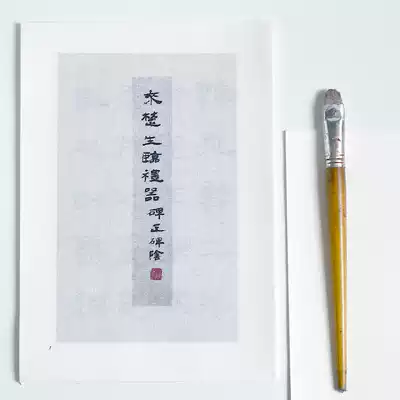 来楚生臨禮器碑正碑陰